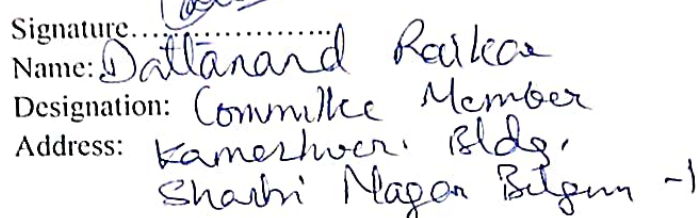 Signature.....................
Name: Dattanand Raikar
Designation: Committee Member
Address: Kameshwer. Bldg.
Shastri Nagar Belgum -1